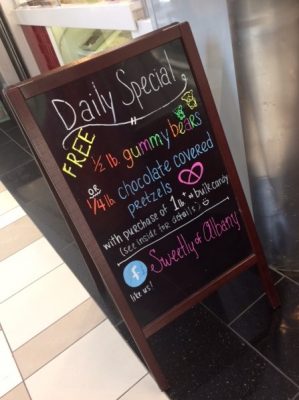 Daily Special
FREE
1/2 lb. gummy bears
OR
1/4 lb chocolate covered
pretzels
with purchase of 1 lb+ of bulk candy
(see inside for details)
f Sweetly of Albany
like us!